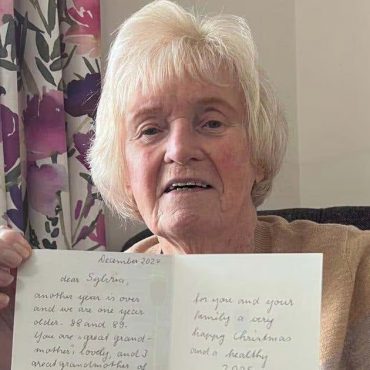 December 2024
dear Sylvia,
another year is over
and we are one year
older. 88 and 89.
You are "great grand-
mother", lovely, and I
great grandmother of
for you and your
family a very
happy Christmas
and a healthy
2025